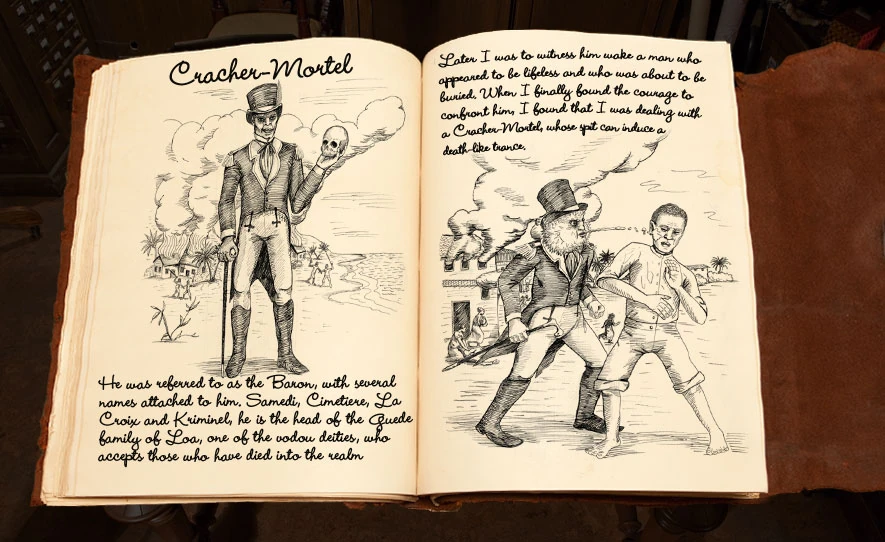 Cracher-Mortel
He was referred to as the Baron, with several
names attached to him, Samedi, Cimetiere, La
Croix and Kriminel, he is the head of the Guede
family of Loa, one of the vodou deities, who
accepts those who have died into the realm
Later I was to witness him wake a man who
appeared to be lifeless and who was about to be
buried. When I finally found the courage to
confront him, I found that I was dealing with
a Cracher-Mortel, whose spit can induce a
death-like trance.